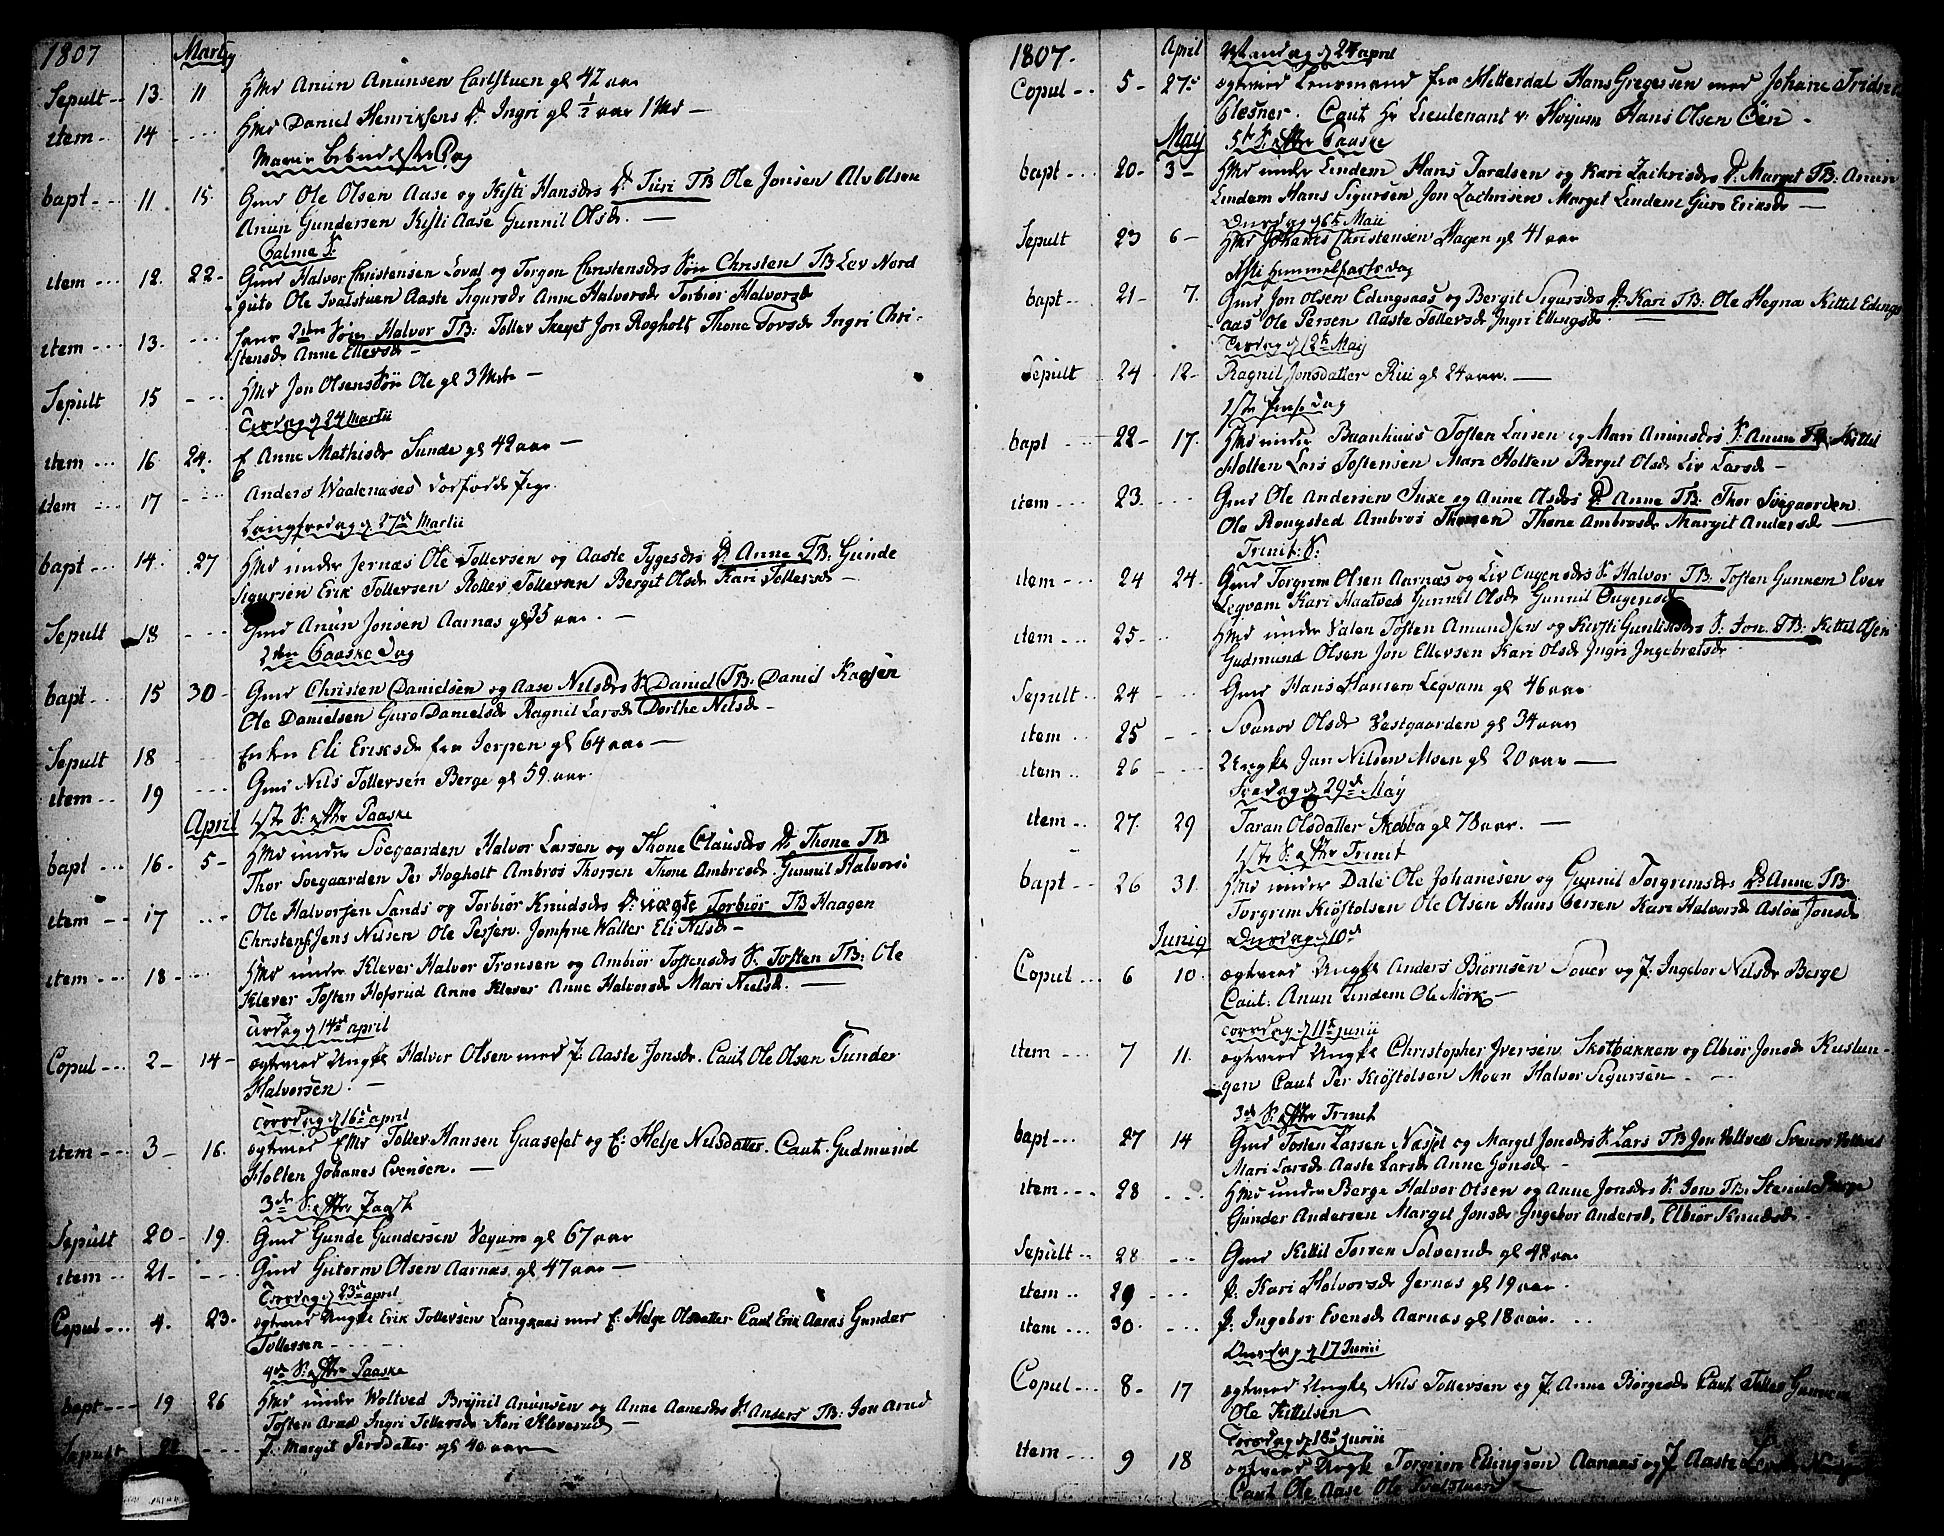 1807 Martij
Sepult 13. 11 HMd Anun Anunsen Carlstuen gl 42 aar
item 14 HMd Daniel Henriksens D. Ingri gl ½ aar 1 Md
Mariæ Bebudelses Dag
bapt 11. 15. Gmd Ole Olsen Aase og Kisti Hansdrs D. Turi TB Ole Jonsen Alv Olsen
Anun Gundersen Kisti Aase Gunnil Olsd.
Palme S.
item 12. 22 Gmd Halvor Christensen Loval og Torgon Christensdrs Søn Christen TB Lev Nord
guto Ole Tvalstuen Aaste Sigursd Anne Halvorsd Torbiør Halvorsd
item 13. 2den Søn Halvor TB: Tollev Skeyet Jon Rogholt Thone Torsd Ingri Chri-
stensd Anne Ellevsd
Sepult 15 HMd Jon Olsens Søn Ole gl 3 Mdr
Tirsdag d 24 Martii
item 16 24. E Anne Mathisdr Sunde gl 42 aar
item 17 Anders Waalenases
Langfredag d 27d Martii
bapt 14. 27 HMd under Jernæs Ole Tollevsen og Aaste Tygesdrs D. Anne TB: Gunde
Sigursen Erik Tollevsen Rollev Tollevsen Bergit Olsd Kari Tollevsd
Sepult 18 Gmd Anun Jonsen Aarnas gl 35 aar.
2den Paaske Dag
bapt 15 30 Gmd Christen Danielsen og Aase Nilsdrs S. Daniel TB: Daniel Kaasen
Ole Danielsen Guro Danielsd Ragnil Larsd Dorthe Nilsd
Sepult 18 Enken Eli Eriksdr fra Jerpen gl 64 aar
item 19 Gmd Nils Tollevsen Berge gl 59. aar.
April 1ste S: efter Paaske
bapt 16. 5 HMd under Svegaarden Halvor Larsen og Thone Clausdrs D. Thone TB
Thor Svegaarden Per Hogholt Ambros Thorsen Thone Ambrosd Gunnil Halvors:
item 17 Ole Halvorsen Sands og Torbiør Knudsdrs D: uægte Torbiør TB Haagen
Christens: Jens Nilsen Ole Persen. Jomfrue Walter Eli Nilsd
item 18 HMd under Klever Halvor Tronsen og Ambiør Tostensdrs S. Tosten TB: Ole
Klever Tosten Hofsrud Anne Klever Anne Halvorsd Mari Nielsd.
Tirsdag d 14d april
Copul 2 14 ægteviet Ungk Halvor Olsen med P. Aaste Jonsd. Caut Ole Olsen Gunder
Halvorsen.
Torsdag d 16d april
item 3 16. ægteviet EMd Tollev Hansen Gaasefet og E: Helje Nilsdatter. Caut. Gudmund
Holten Johanes Evensen.
3de S: efter Paask
Sepult 20 19. Gmd Gunde Gundersen Veyum gl 67 aar
item 21 Gmd Guttorm Olsen Aarnas gl 47 aar
Torsdag d 23d april
Copul 4. 23. ægteviet Ungk Erik Tollevsen Langaas med E: Helge Olsdatter Caut Erik Aaras Gunder
Tollevsen
4de S: efter Paaske
bapt 19 26 HMd under Woltved Brynil Anunsen og Anne Aanesdrs S. Anders TB: Jon Arnd
Tosten Arnd Ingri Tollevsd
Sepult P. Margit Persdatter gl 40 aar
1807. April Mandag d 27 april
Copul 5 27 ægteviet Lensmand fra Hitterdal Hans Gregersen med Johane
Clesner. Caut Hr Lieutenant v: Høyum Hans Olsen Øen
May 5te S. efter Paaske
bapt 20 3 HMd under Lindem Hans Taralsen og Kari Zachrisdrs D. Marget TB: Anun
Lindem Hans Sigursen Jon Zachrisen Marget Lindem Guro Eriksd
Onsdag d 6te Maii
Sepult 23 6 HMd Johanes Christensen Hagen gl 41 aar
Xsti Himmelfarts dag
bapt 21 7. Gmd Jon Olsen Edingsaas og Bergit Sigursdrs D. Kari TB: Ole Hegna Kittil Edings
aas Ole Persen Aaste Tollevsd Ingri Ellingsd
Tirsdag d 12te May
Sepult 24 12 Ragnil Jonsdatter Rui gl 24 aar.
1ste Pinse dag
bapt 22 17. HMd under Baanhuus Tosten Larsen og Mari Anunsdrs S. Anun TB: Kittil
Holten Lars Tostensen Mari Holten Bergit Olsd Liv Larsd
item 23. Gmd Ole Andersen Juxe og Anne Olsdrs D. Anne TB: Thor Svegaarden
Ole Rougsted Ambros Thorsen Thone Ambrosd Margit Andersd
Trinit: S:
item 24 24. Gmd Torgrim Olsen Aarnæs og Liv Ougensdrs S. Halvor TB: Tosten Gunnem Even
Legvam Kari Haatved Gunnil Olsd Gunnil Ougensd
item 25 HMd under Valen Tosten Amundsens og Kirsti Gunliksdrs S. Jon. TB: Kittil Olsen
Gudmund Olsen Jon Ellevsen Kari Olsd Ingri Ingebretsd
Sepult 24 Gmd Hans Hansen Legvam gl 46 aar
item 25 Svanor Olsd Vestgaarden gl 34 aar
item 26 Ungk Jan Nilsen Moen gl 20 aar
Fredag d 29d May
item 27. 29 Taran Olsdatter Skobba gl 78 aar.
1ste S: efter Trinit
bapt 26 31. HMd under Dale Ole Johanesen og Gunnil Torgrimsdrs D. Anne TB:
Torgrim Kiøstolsen Ole Olsen Hans Persen Kari Halvorsd Aslou Jonsd
Junij Onsdag d 10d
Copul 6 10. ægteviet Ungk Anders Biørnsen Souer og P. Ingebor Nilsdr Berge
Caut. Anun Lindem Ole Mørk
Torsdag d 11te junii
item 7 11. ægteviet Ungk Christopher Iversen Skotbakken og Elbiør Jonsd Kuslun-
gen Caut Per Kiøstolsen Moen Halvor Sigursen
3de S: efter Trinit
bapt 27 14 Gmd Tosten Larsen Næsset og Marget Jonsdrs S. Lars TB Jon Holtved Svanor Holtved
Mari Larsd Aaste Larsd Anne Jonsd
item 28 HMd under Berge Halvor Olsen og Anne Jonsdrs S. Jon TB: Berge
Gunder Andersen Marget Jonsd Ingebor Andersd, Elbiør Knudsd
Sepult 28 Gmd Kittil Torsen Solverud gl 48 aar
item 29 P. Kari Halvorsd Jernæs gl 19 aar
item 30 P. Ingebor Evensd Aarnæs gl 18 aar.
Onsdag d 17 Junii
Copul 8 17 ægteviet Ungk Nils Tollevsen og P. Anne Børgesd Caut Tollev Gunnem
Ole Kittelsen
Torsdag d 18d junii
item 9 18 ægteviet Ungk Torgrim Ellingsøn Aarnæs og P Aaste
Caut Ole Aase Ole Tvalstuen